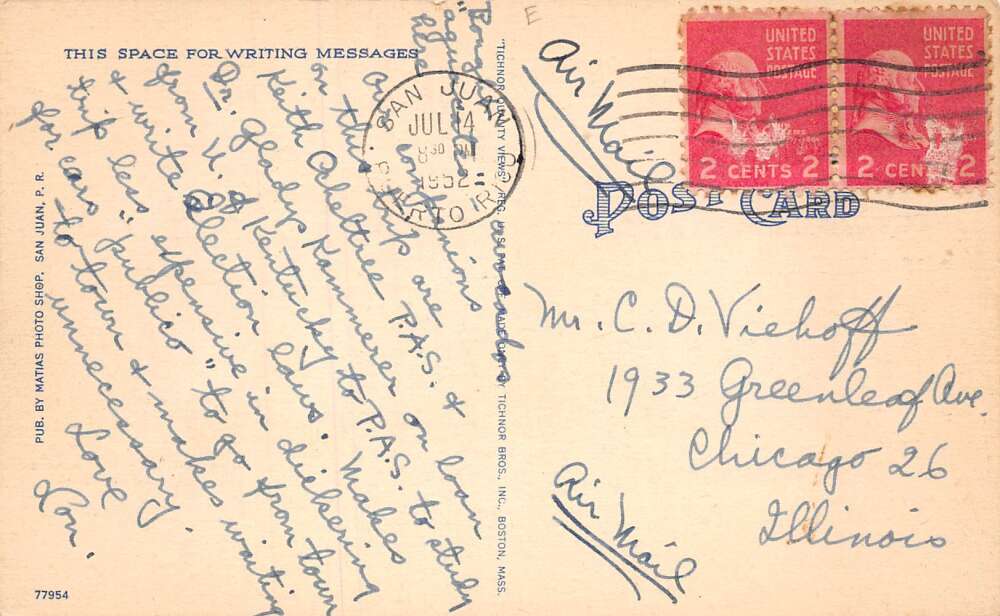 THIS SPACE FOR WRITING MESSAGES
on this trip are
Keith Ocheltree P.A.S. &
Dr. Gladys Kammerer on loan
from U. of Kentucky to P.A.S. to study
& write election laws. Makes
trip less expensive in dickering
for cars "publico" to go from town
to town & makes waiting
unnecessary.
Love
Lou.
PUB. BY MATIAS PHOTO SHOP, SAN JUAN, P. R.
77954
"TICHNOR QUALITY VIEWS" REG. U. S. PAT. OFF. MADE ONLY BY TICHNOR BROS., INC., BOSTON, MASS.
E
SAN JUAN
JUL 14
8 30 PM
1952
PUERTO RICO
UNITED STATES POSTAGE
2 CENTS 2
UNITED STATES POSTAGE
2 CENTS 2
Air Mail
POST CARD
Mr. C. D. Viehoff
1933 Greenleaf Ave.
Chicago 26
Illinois
Air Mail